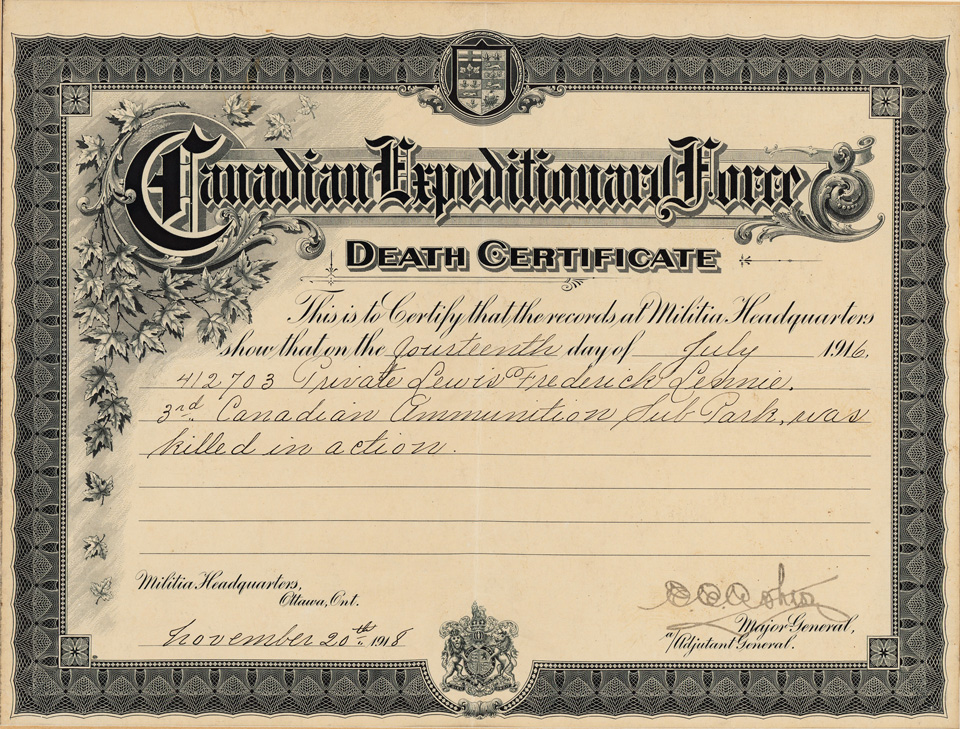 Canadian Expeditionary Force
DEATH CERTIFICATE
This is to Certify that the records at Militia Headquarters
show that on the fourteenth day of July 1916,
412703 Private Lewis Frederick Lennie.
3rd. Canadian Ammunition Sub Park, was
killed in action.
Militia Headquarters,
Ottawa, Ont.
November 20th 1918
Major General,
a/Adjutant General.